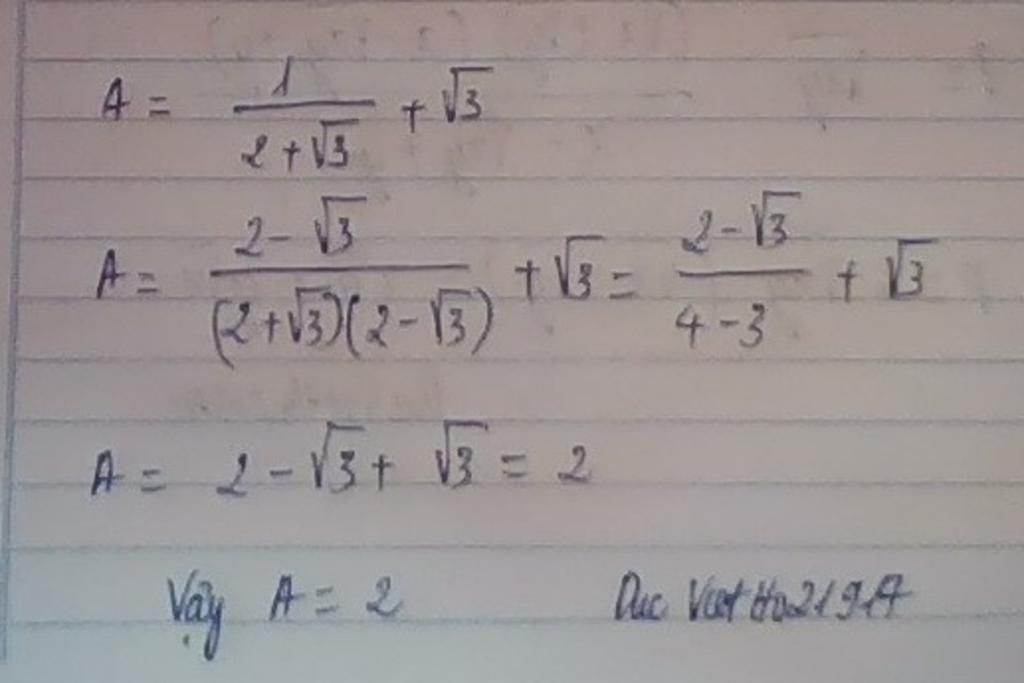 A = 1/(2 + √3) + √3
A = (2 - √3)/((2 + √3)(2 - √3)) + √3 = (2 - √3)/(4 - 3) + √3
A = 2 - √3 + √3 = 2
Vậy A = 2 Duc Viet